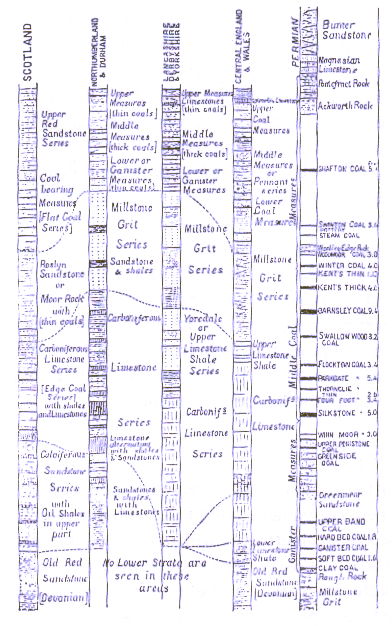 SCOTLAND
Upper
Red
Sandstone
Series
Coal
bearing
Measures
[Flat Coal
Series]
Roslyn
Sandstone
or
Moor Rock
with
[thin coals]
Carboniferous
Limestone
Series
[Edge Coal
Series]
with shales
and Limestones
Calciferous
Sandstone
Series
with
Oil Shales
in upper
part
Old Red
Sandstone
[Devonian]
NORTHUMBERLAND
& DURHAM
Upper
Measures
[thin coals]
Middle
Measures
[thick coals]
Lower or
Ganister
Measures
[thin coals]
Millstone
Grit
Series
Sandstone
& shales
Carboniferous
Limestone
Series
Limestone
alternating
with shales
& Sandstones
Sandstones
& shales,
with
Limestones
No Lower Strata are
seen in these
areas
LANCASHIRE
& YORKSHIRE
Upper Measures
Limestones
[thin coals]
Middle
Measures
[thick coals]
Lower or
Ganister
Measures
Millstone
Grit
Series
Yoredale
or
Upper
Limestone
Shale
Series
Carbonifs
Limestone
Series
CENTRAL ENGLAND
& WALES
Upper
Coal
Measures
Middle
Measures
or
Pennant
series
Lower
Coal
Measures
Millstone
Grit
Series
Upper
Limestone
Shale
Carbonifs
Limestone
Lower
Limestone
Shale
Old Red
Sandstone
[Devonian]
PERMIAN
Measures
Middle Coal
Measures
Ganister
Bunter
Sandstone
Magnesian
Limestone
Pontefract Rock
Ackworth Rock
SHAFTON COAL
STEAM COAL
WINTER COAL 4.0
KENT'S THIN
KENT'S THICK 4.0
BARNSLEY COAL 9.4
SWALLOW WOOD 3.2
COAL
FLOCKTON COAL 3.4
PARKGATE 5.4
FOUR FOOT
SILKSTONE - 5.0
WHIN MOOR - 3.0
UPPER PENISTONE
COAL
GREENSIDE
COAL
Greenmoor
Sandstone
UPPER BAND
COAL
HARD BED COAL 1.8
GANISTER COAL
SOFT BED COAL 1.6
CLAY COAL
Rough Rock
Millstone
Grit